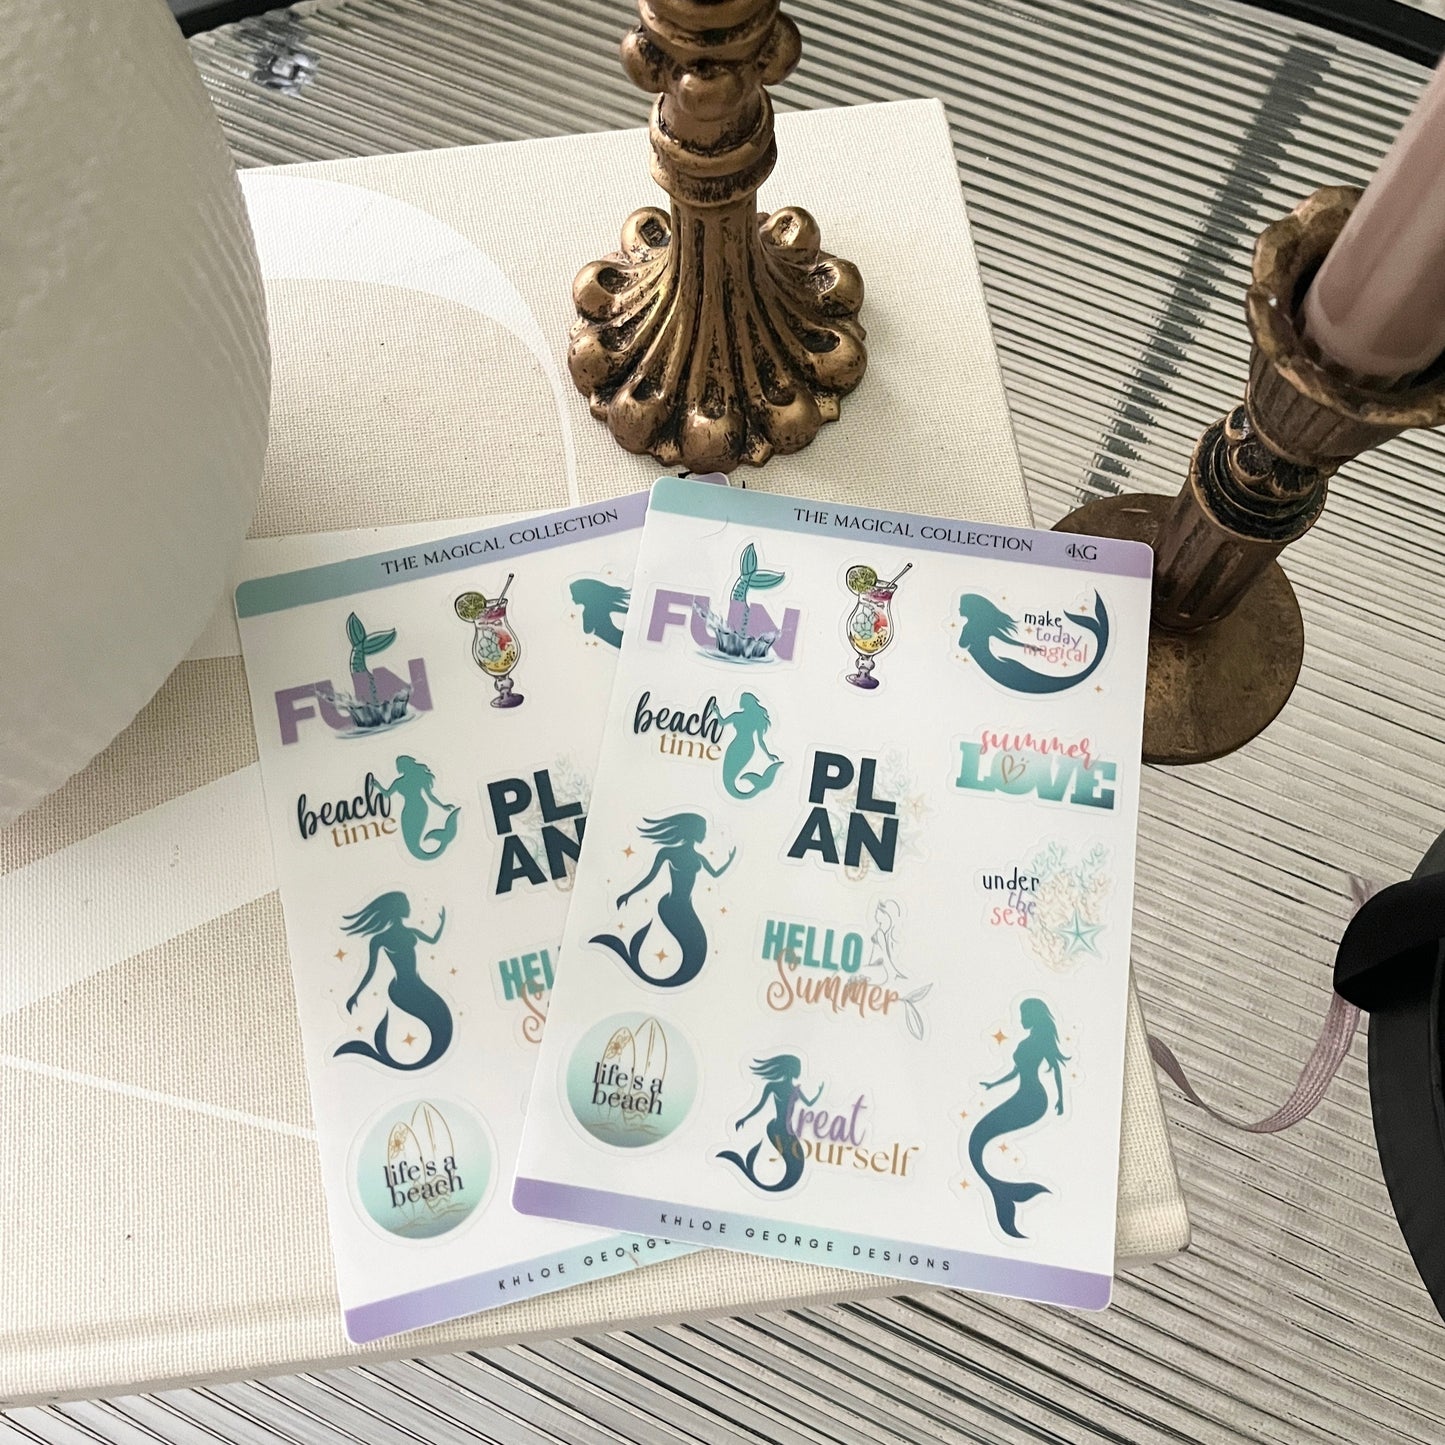 THE MAGICAL COLLECTION
FUN
beach
time
PL
AN
life's a
beach
KHLOE GEORGE
THE MAGICAL COLLECTION
KG
FUN
make
today
magical
beach
time
PL
AN
summer
LOVE
under
the
sea
HELLO
Summer
life's a
beach
treat
yourself
KHLOE GEORGE DESIGNS